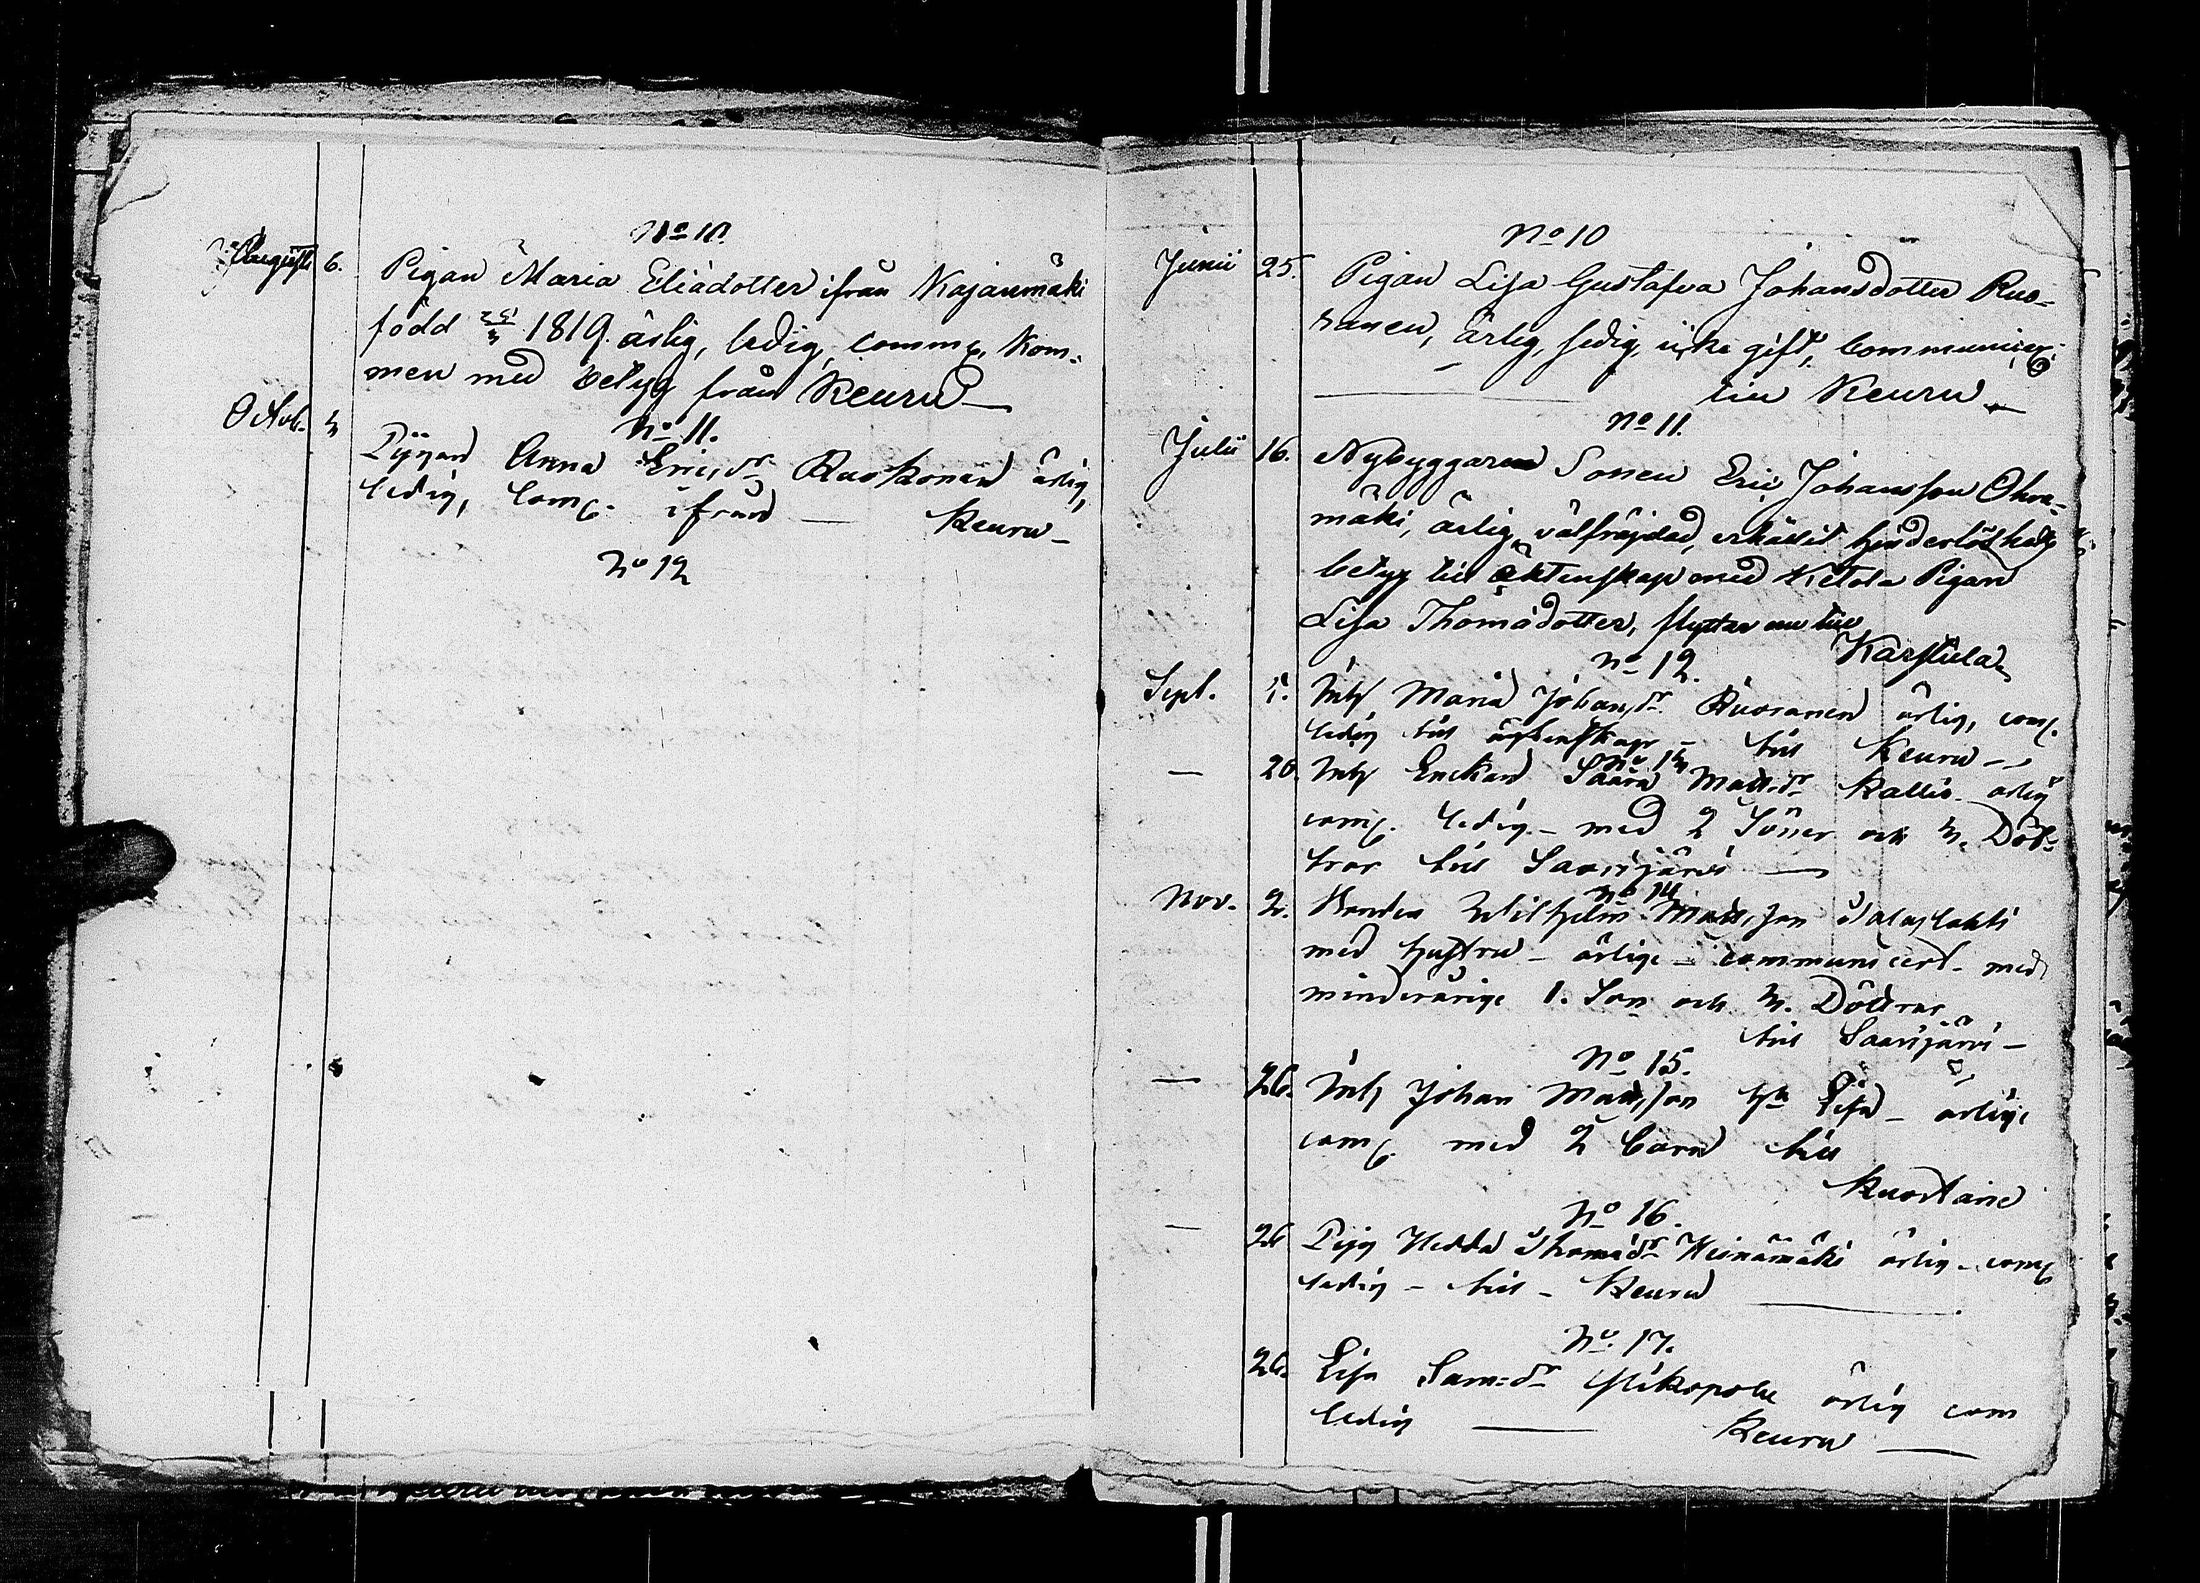 No 10.
Augusti 6. Pigan Maria Eliädotter ifrån Kajanmäki
född 1819. ärlig, ledig, comm. kom-
men med betyg från Keuru
No 11.
Octob. 3 Pigan Anna Ericsdr Ruokonen ärlig,
ledig, com. ifrån — Keuru —
No 12
No 10
Junii 25. Pigan Lisa Gustafva Johansdotter Ruo-
ranen, ärlig, ledig, icke gift, communic.
till Keuru
No 11.
Julii 16. Nybyggaren Sonen Eric Johansson Ohra-
mäki, ärlig, välfräjdad, erhållit hinderlöshets
betyg till äktenskap med Ketola Pigan
Lisa Thomädotter, flyttar nu till
Karstula
No 12.
Sept. 5. Inh. Maria Johansdr Ruoranen ärlig, com.
ledig till äktenskap — till Keuru —
No 13
— 20. Inh Enckan Saara Mattsdr Kallio ärlig
com. ledig — med 2 Söner och 3. Döt-
trar till Saarijärvi —
No 14
Nov. 2. Bonden Wilhelm Mattsson
med hustru — ärlige — communicert — med
minderårige 1. Son och 3. Döttrar
till Saarijärvi —
No 15.
— 26. Inh Johan Mattsson h. Lisa — ärlige
com. med 2 barn till
Kuortane
No 16.
— 26 Pig Hedda Thomädr Heinämäki ärlig — com
ledig — till — Keuru
No. 17.
26. Lisa Sam-dr ärlig com
ledig — Keuru —